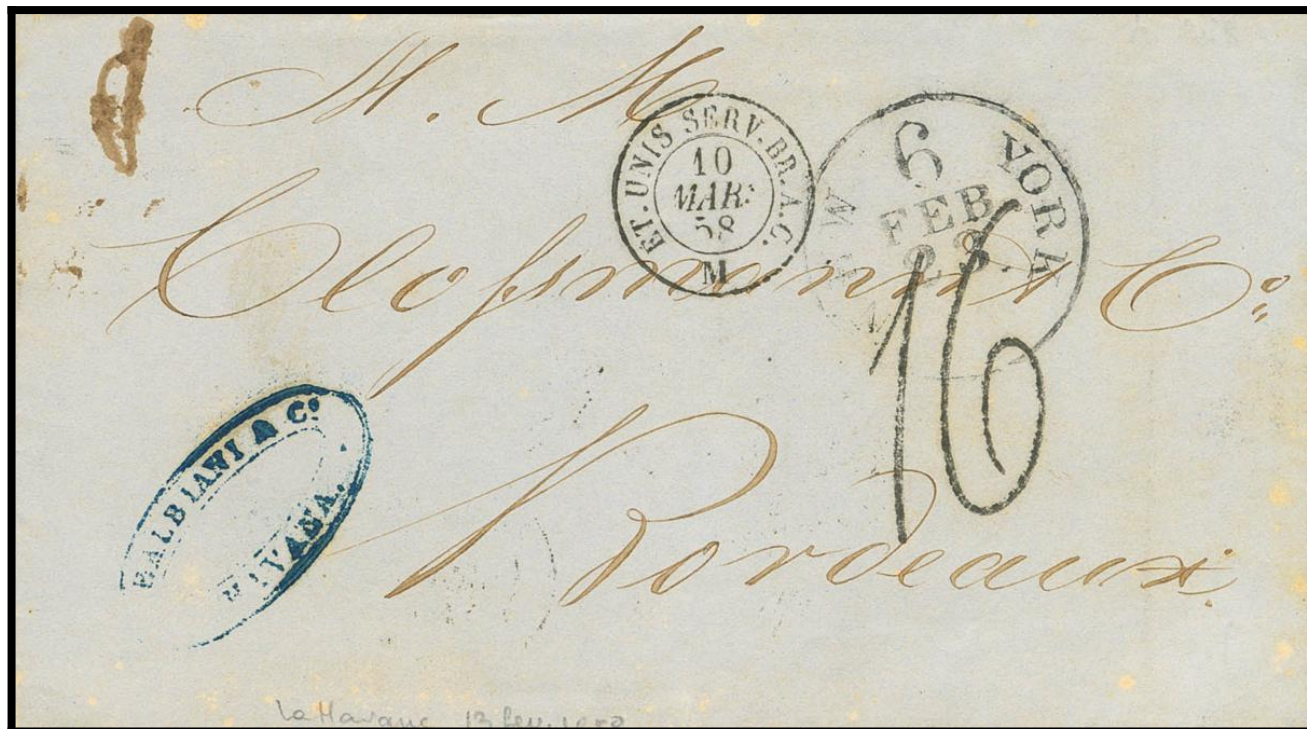 M. M.
ET. UNIS SERV. BR. A. C.
10
MARS
58
M
NEW YORK
6
FEB
Clossmann & Cº
16
BALBIANI & Cº
HAVANA.
Bordeaux.
La Havane 13 fev. 1858